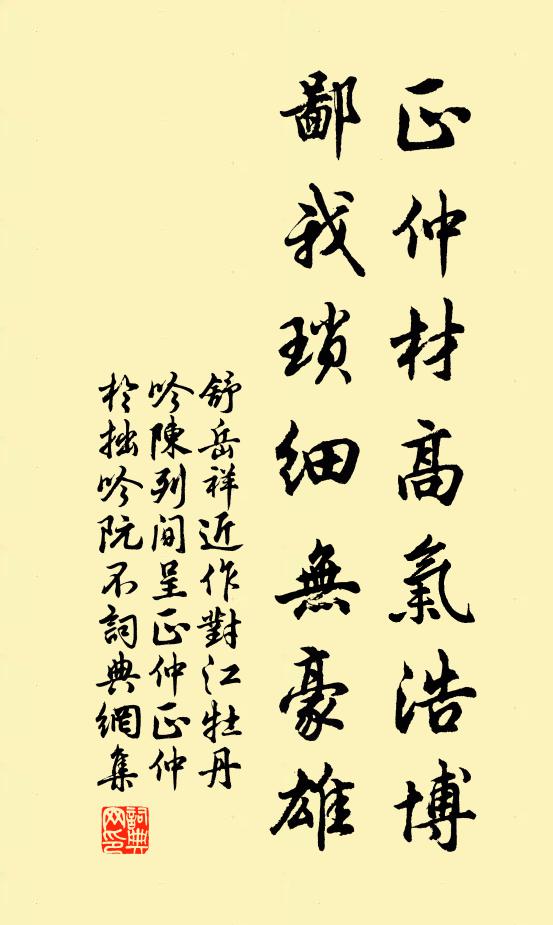 正仲材高氣浩博
鄙我瑣細無豪雄
舒岳祥近作對江牡丹
吟陳列間呈正仲正仲
於拙吟阮不詞典網集
詞典
网印